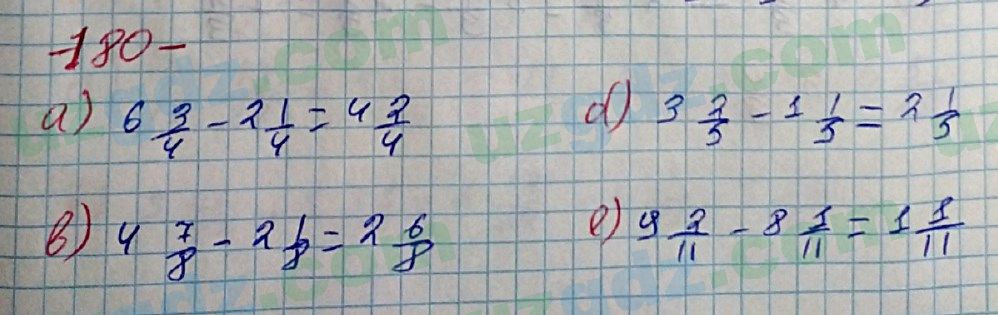 -180-
a) 6 3/4 - 2 1/4 = 4 2/4
d) 3 2/5 - 1 1/5 = 2 1/5
b) 4 7/8 - 2 1/8 = 2 6/8
e) 9 2/11 - 8 1/11 = 1 1/11
uzgdz.com